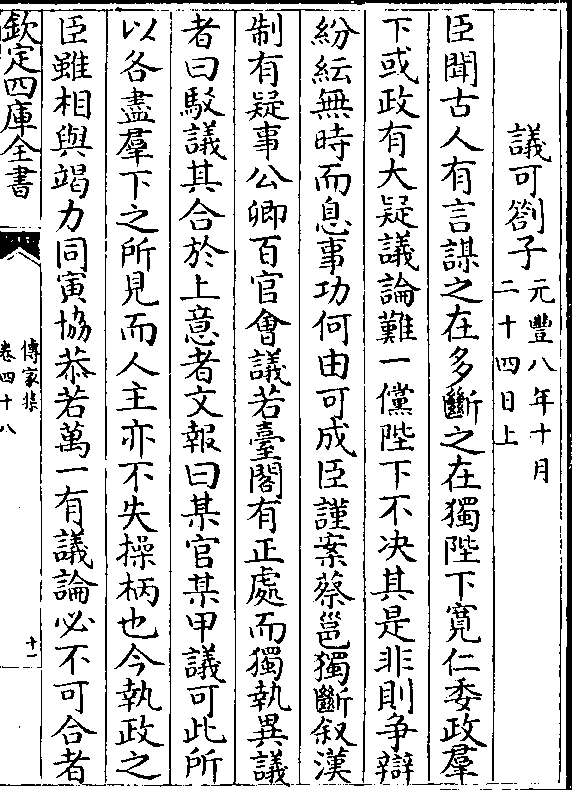 議可劄子元豐八年十月
二十四日上
臣聞古人有言謀之在多斷之在獨陛下寛仁委政羣
下或政有大疑議論難一儻陛下不決其是非則争辯
紛紜無時而息事功何由可成臣謹案蔡邕獨斷叙漢
制有疑事公卿百官會議若臺閣有正處而獨執異議
者曰駁議其合於上意者文報曰某官某甲議可此所
以各盡羣下之所見而人主亦不失操柄也今執政之
臣雖相與竭力同寅協恭若萬一有議論必不可合者
欽定四庫全書
傳家集
卷四十八
十一